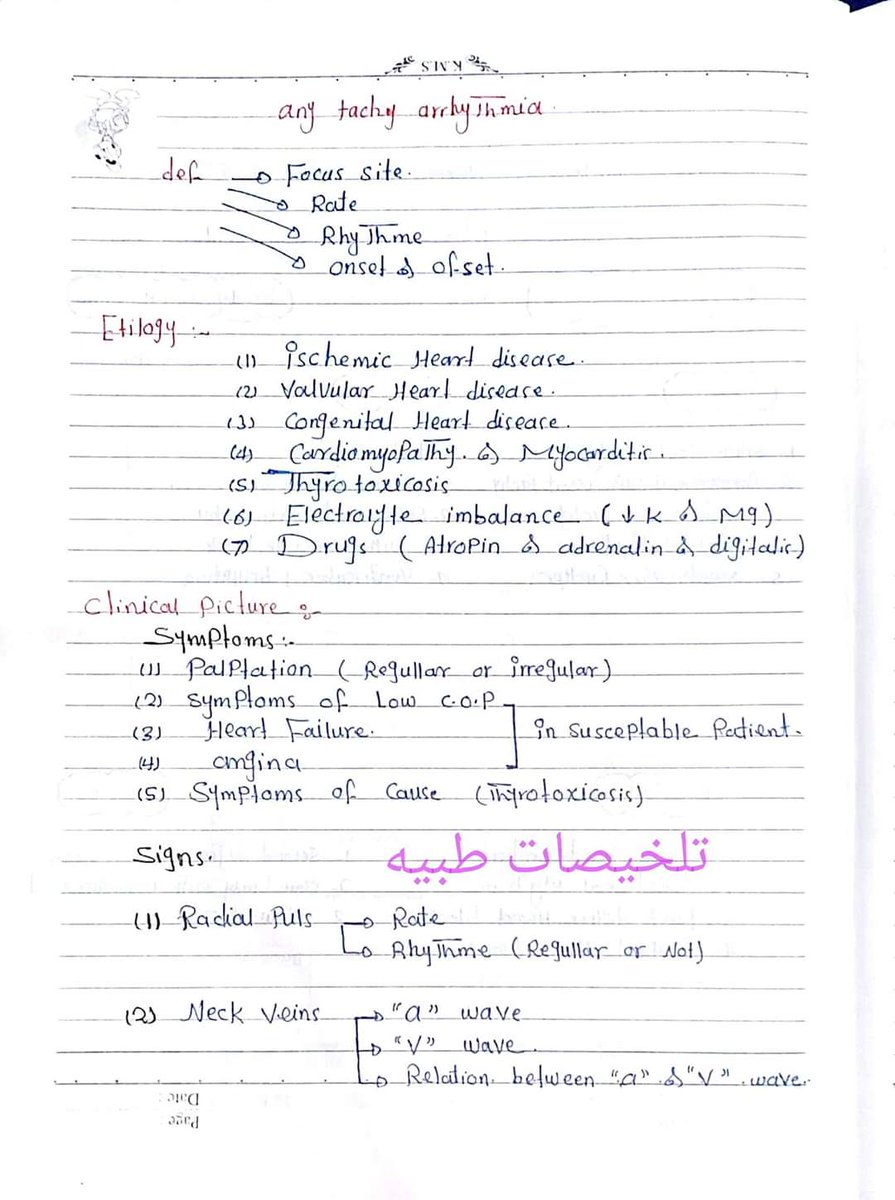 K.M.S
any tachy arrhythmia
def → Focus site.
→ Rate
→ Rhythme
→ onset & ofset.
Etilogy :-
(1) ischemic Heart disease.
(2) Valvular Heart disease.
(3) Congenital Heart disease.
(4) Cardiomyopathy. & Myocarditis.
(5) Thyrotoxicosis
(6) Electrolyte imbalance (↓ K & Mg)
(7) Drugs (Atropin & adrenalin & digitalis)
Clinical Picture :-
Symptoms :-
(1) Palptation (Regullar or irregular)
(2) symptoms of Low C.O.P
(3) Heart Failure. in susceptable Patient.
(4) angina
(5) Symptoms of Cause (Thyrotoxicosis)
Signs.
تلخيصات طبيه
(1) Radial Puls → Rate
→ Rhythme (Regullar or Not)
(2) Neck Veins → "a" wave
→ "V" wave.
→ Relation between "a" & "V" wave.
Date:
Page: